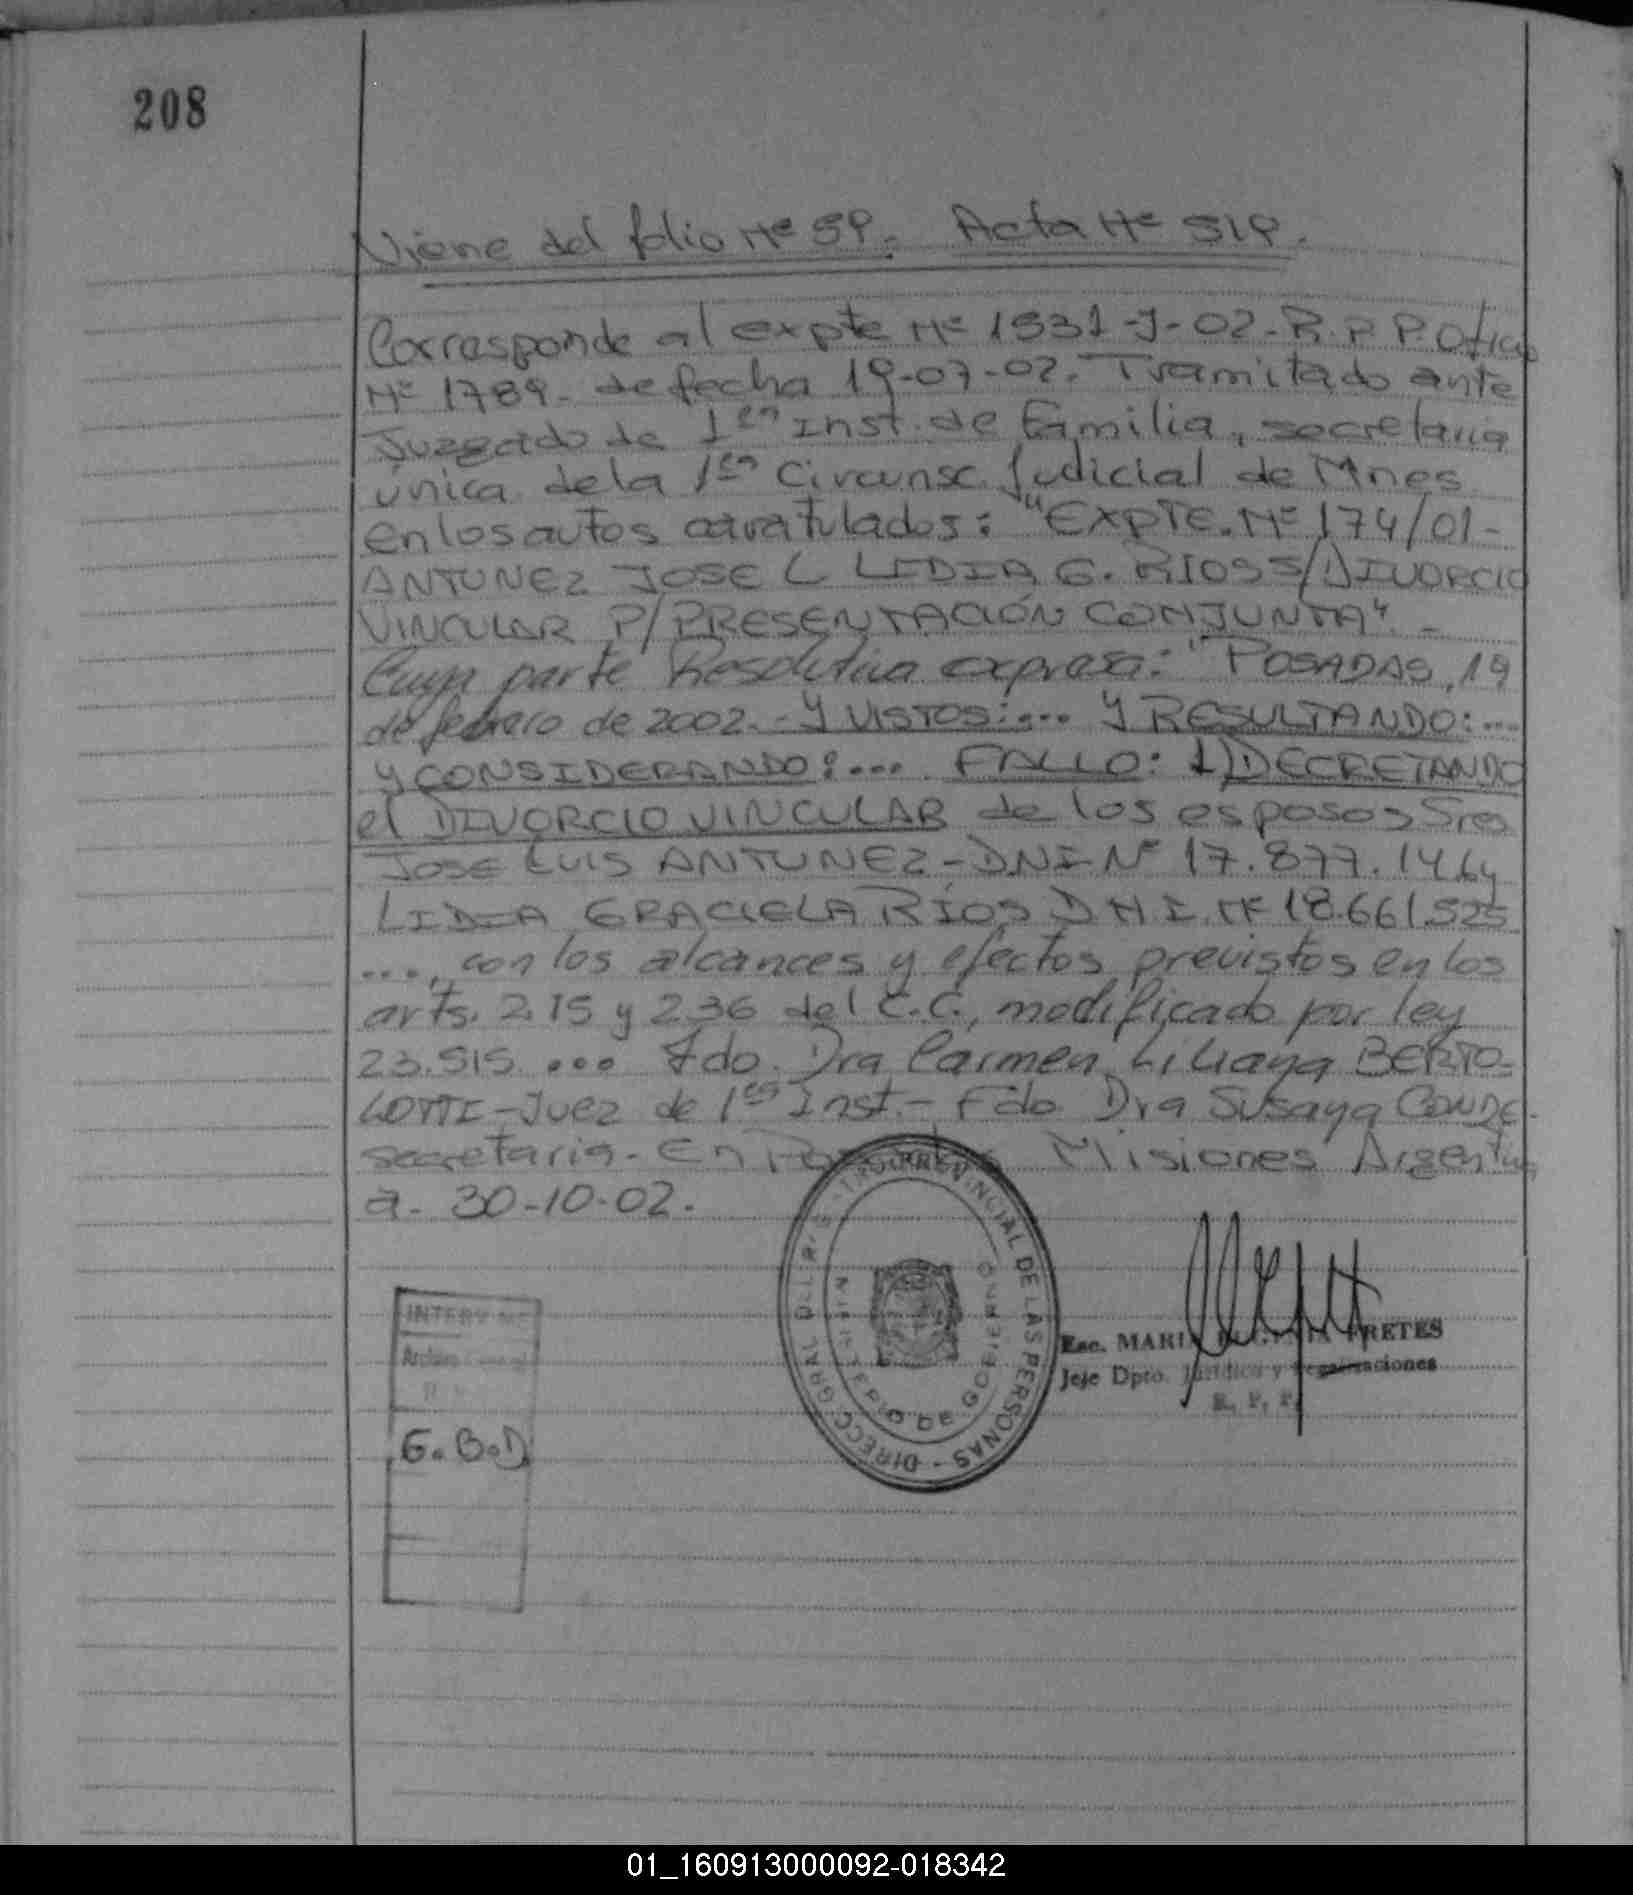 208
Viene del folio Nº 59. Acta Nº 519.
Corresponde al expte Nº 1531-J-02-R.P.P. Oficio
Nº 1789- de fecha 19-07-02. Tramitado ante
Juzgado de 1era Inst. de Familia, secretaria
única de la 1era Circunsc. Judicial de Mnes
en los autos caratulados: "EXPTE. Nº 174/01-
ANTUNEZ JOSE L LIDIA G. RIOS S/DIVORCIO
VINCULAR P/PRESENTACIÓN CONJUNTA". -
Cuya parte Resolutiva expresa: "POSADAS, 19
de febrero de 2002.- Y VISTOS:... Y RESULTANDO:...
y CONSIDERANDO:... FALLO: 1) DECRETANDO
el DIVORCIO VINCULAR de los esposos Sres
JOSE LUIS ANTUNEZ - DNI Nº 17.877.146 y
LIDIA GRACIELA RÍOS DNI. Nº 18.661.525
..., con los alcances y efectos previstos en los
arts. 215 y 236 del C.C., modificado por ley
23.515. ... Fdo. Dra Carmen Liliana BERTO-
LOTTI - Juez de 1era Inst.- Fdo. Dra Susana CONDE-
secretaria. En Misiones Argentina
a. 30-10-02.
DIRECC. GRAL. DEL REGISTRO PROVINCIAL DE LAS PERSONAS -
MINISTERIO DE GOBIERNO
Esc. MARIA FRETES
Jefe Dpto. Jurídico y
R. P. P.
INTERVINE
Archivo General
R. P.
G.B.D.
01_160913000092-018342